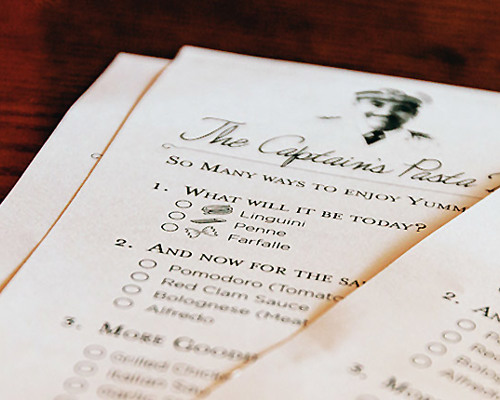 The Captain's Pasta
So Many ways to enjoy Yumm
1. What will it be today?
Linguini
Penne
Farfalle
2. And now for the sa
Pomodoro (Tomato
Red Clam Sauce
Bolognese (Meat
Alfredo
3. More Good
Grilled Chic
Italian Sa
2. An
P
Re
Bolo
Alfred
3. Mo